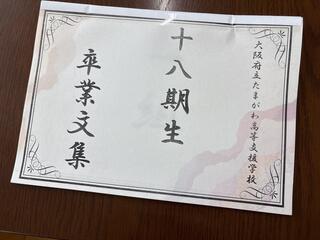 大阪府立たまがわ高等支援学校
十八期生
卒業文集